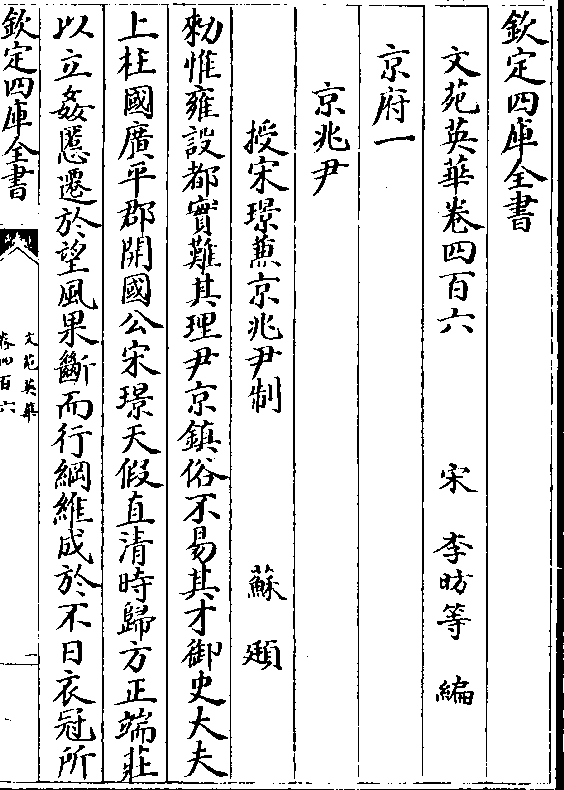 欽定四庫全書
文苑英華卷四百六
宋 李昉等 編
京府一
京兆尹
授宋璟兼京兆尹制 蘇頲
勑惟雍設都實難其理尹京鎮俗不易其才御史大夫
上柱國廣平郡開國公宋璟天假直清時歸方正端莊
以立姦慝遷於望風果斷而行綱維成於不日衣冠所
欽定四庫全書
文苑英華
卷四百六
一